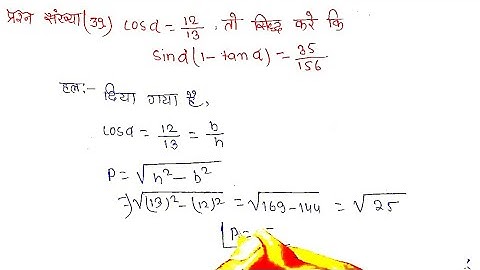 प्रश्न संख्या (39) cosα = 12/13, तो सिद्ध करें कि
sinα(1 - tanα) = 35/156
हल:- दिया गया है,
cosα = 12/13 = b/h
P = √(h² - b²)
⇒ √((13)² - (12)²) = √(169 - 144) = √25
P =